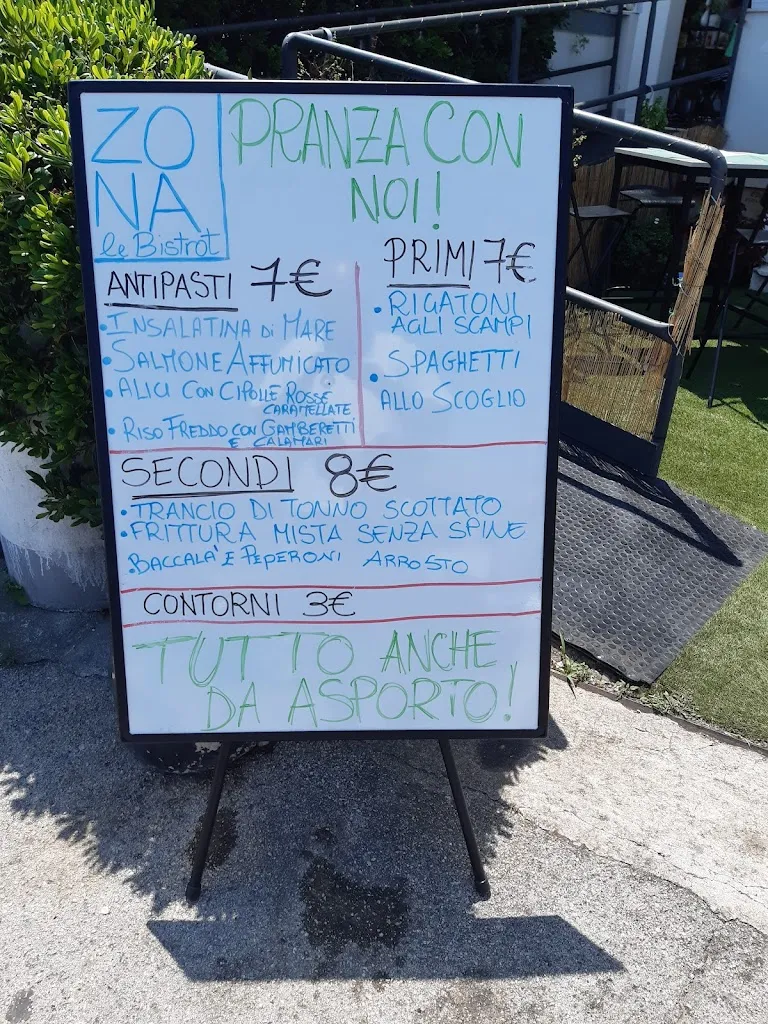 ZO
NA
le Bistrot
PRANZA CON
NOI!
ANTIPASTI 7€
• INSALATINA DI MARE
• SALMONE AFFUMICATO
• ALICI CON CIPOLLE ROSSE
CARAMELLATE
• RISO FREDDO CON GAMBERETTI
E CALAMARI
PRIMI 7€
• RIGATONI
AGLI SCAMPI
• SPAGHETTI
ALLO SCOGLIO
SECONDI 8€
• TRANCIO DI TONNO SCOTTATO
• FRITTURA MISTA SENZA SPINE
• BACCALA' E PEPERONI ARROSTO
CONTORNI 3€
TUTTO ANCHE
DA ASPORTO!